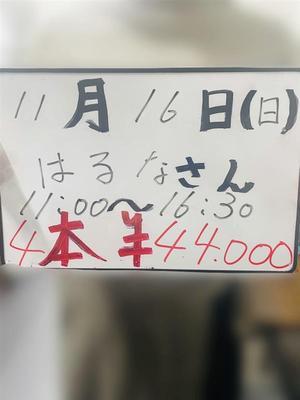 11月16日(日)
はるなさん
11:00～16:30
4本 ¥44.000